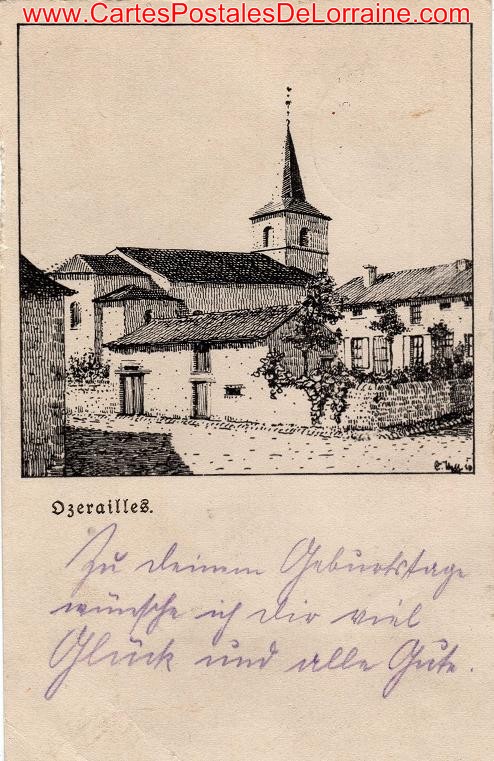 www.CartesPostalesDeLorraine.com
Ozerailles.
Zu deinem Geburtstage
wünsche ich dir viel
Glück und alle Gute.